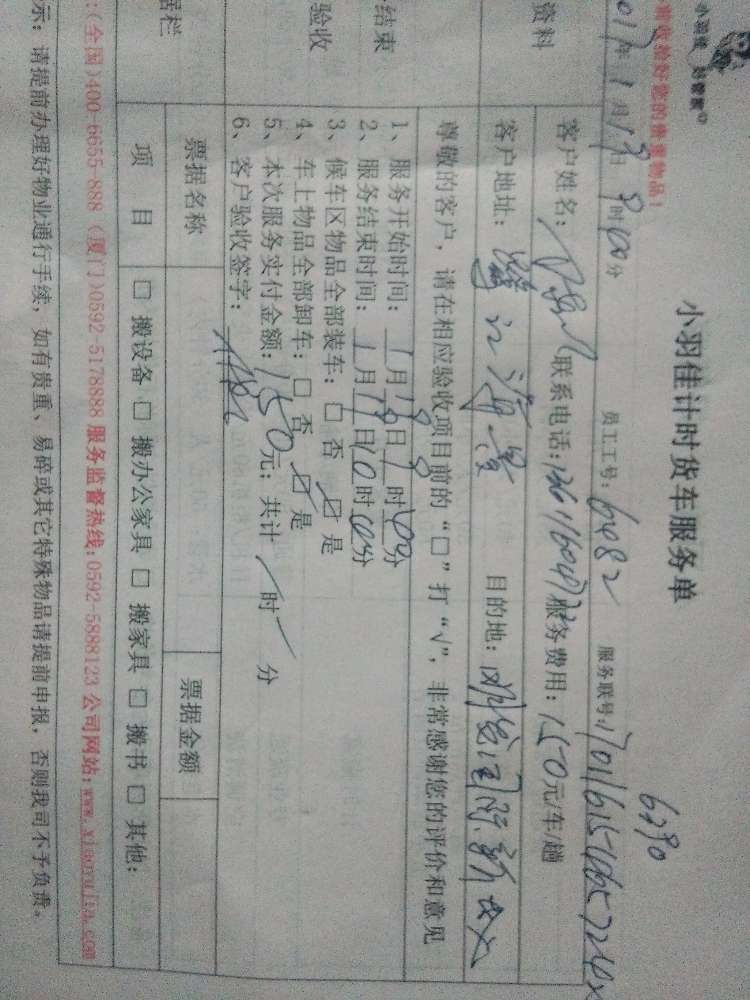 小羽佳计时货车服务单
前收拾好您的贵重物品！
017年1月19日8时00分 员工工号：6482 服务联号：
6290
资料
客户姓名： 联系电话： 服务费用：150元/车/趟
客户地址： 海景 目的地：
尊敬的客户，请在相应验收项目前的“□”打“√”，非常感谢您的评价和意见
结束
验收
1、服务开始时间：1月19日 时00分
2、服务结束时间：1月19日10时00分
3、候车区物品全部装车：□ 否 ☑ 是
4、车上物品全部卸车：□ 否 ☑ 是
5、本次服务实付金额：150元；共计 时 分
6、客户验收签字：
据栏
票据名称 票据金额
项 目 □ 搬设备 □ 搬办公家具 □ 搬家具 □ 搬书 □ 其他：
:(全国)400-6655-888 (厦门)0592-5178888 服务监督热线:0592-5888123 公司网站:www.xiaoyujia.com
示：请提前办理好物业通行手续，如有贵重、易碎或其它特殊物品请提前申报，否则我司不予负责。